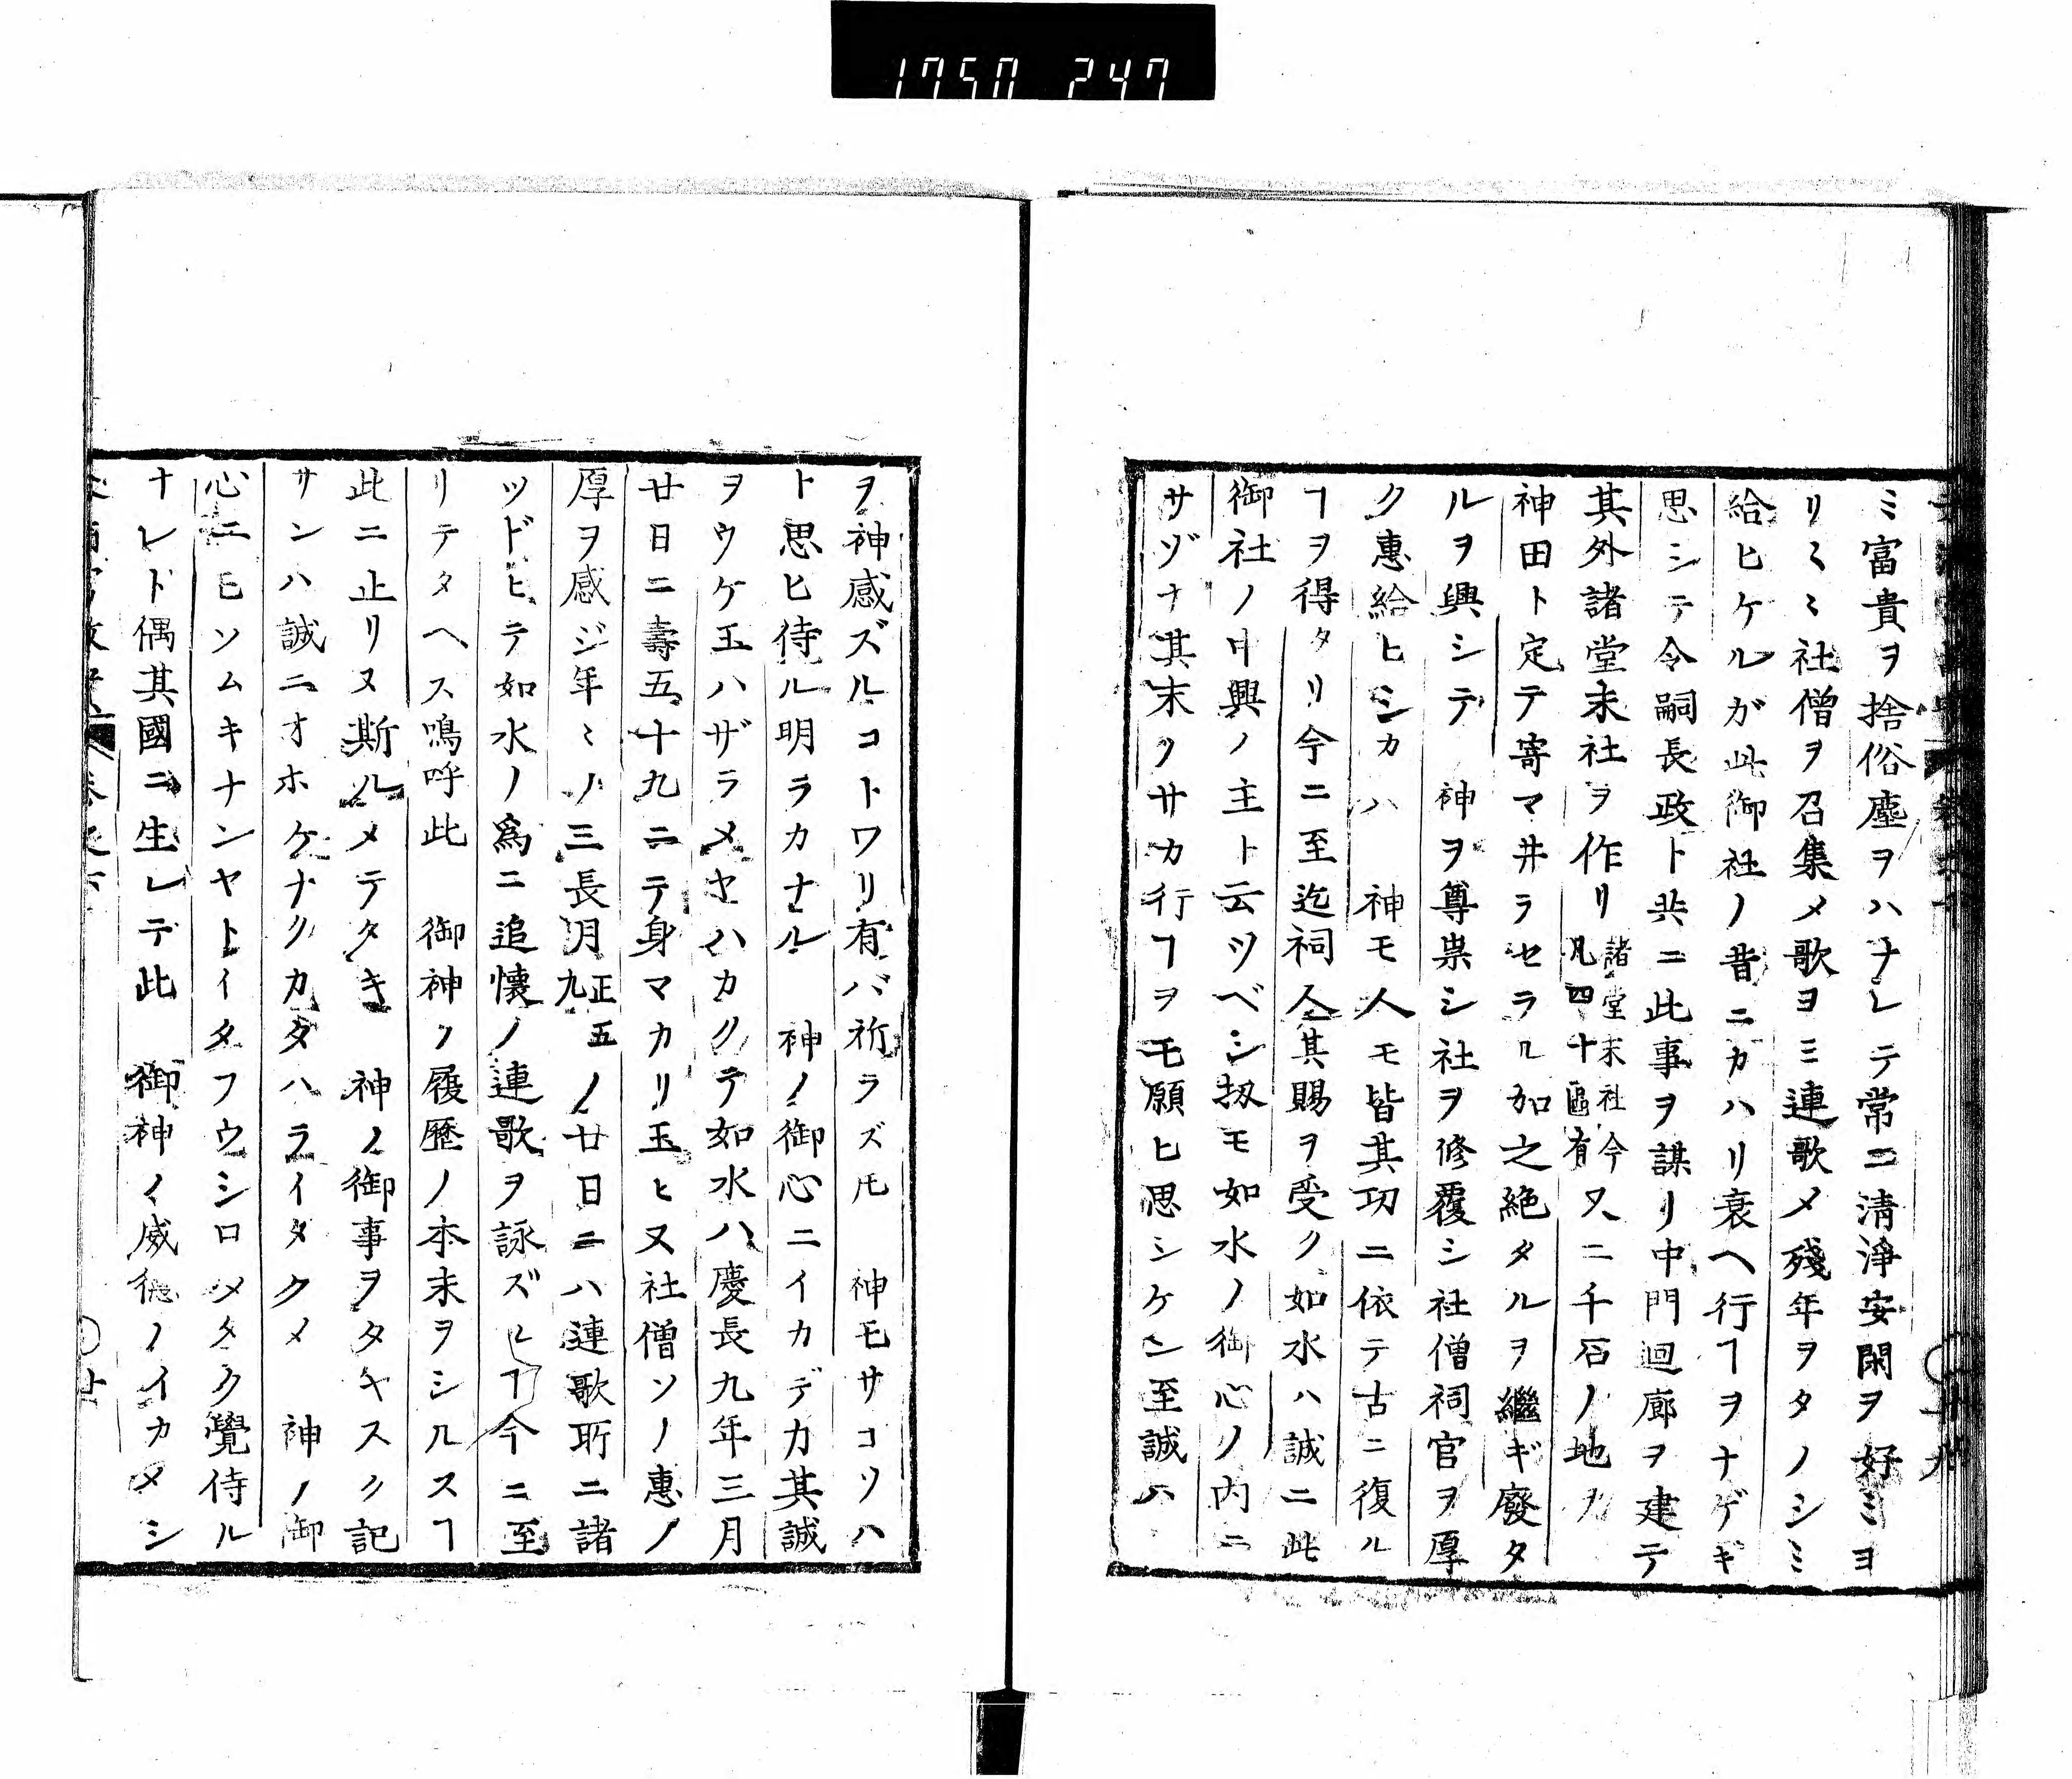 1750 247
ミ富貴ヲ捨俗塵ヲハナレテ常ニ清淨安閑ヲ好ミヨ
リ〱ミ社僧ヲ召集メ歌ヨミ連歌メ殘年ヲタノシミ
給ヒケルガ此御社ノ昔ニカハリ衰ヘ行ヿヲナゲギ
思シテ令嗣長政ト共ニ此事ヲ謀リ中門迴廊ヲ建テ
其外諸堂末社ヲ作リ諸堂末社今凡四十區有又二千石ノ地ヲ
神田ト定テ寄マ井ラセラル加之絶タルヲ繼ギ廢タ
ルヲ興シテ　神ヲ尊祟シ社ヲ修覆シ社僧祠官ヲ厚
ク惠給ヒシカハ　神モ人モ皆其功ニ依テ古ニ復ル
ヿヲ得タリ今ニ至迄祠人其賜ヲ受ク如水ハ誠ニ此
御社ノ中興ノ主ト云ツベシ扨モ如水ノ御心ノ内ニ
サヅナ其末クサカ行ヿヲモ願ヒ思シケン至誠ハ
ヲ神感ズルコトワリ有バ祈ラズ𪜈　神モサコソハ
ト思ヒ侍ル明ラカナル　神ノ御心ニイカデカ其誠
ヲウケ玉ハザラメヤハカクテ如水ハ慶長九年三月
廿日ニ壽五十九ニテ身マカリ玉ヒヌ社僧ソノ惠ノ
厚ヲ感ジ年ミノ三長月正五九ノ廿日ニハ連歌所ニ諸
ツドヒテ如水ノ爲ニ追懷ノ連歌ヲ詠ズルヿ今ニ至
リテタヘス嗚呼此　御神ノ履歷ノ本末ヲシルスヿ
此ニ止リヌ斯ルメテタキ　神ノ御事ヲタヤスク記
サンハ誠ニオホケナクカタハライタクメ　神ノ御
心ニモソムキナンヤトイタフウシロメタク覺侍ル
ナレド偶其國ニ生レテ此　御神ノ威德ノイカメシ